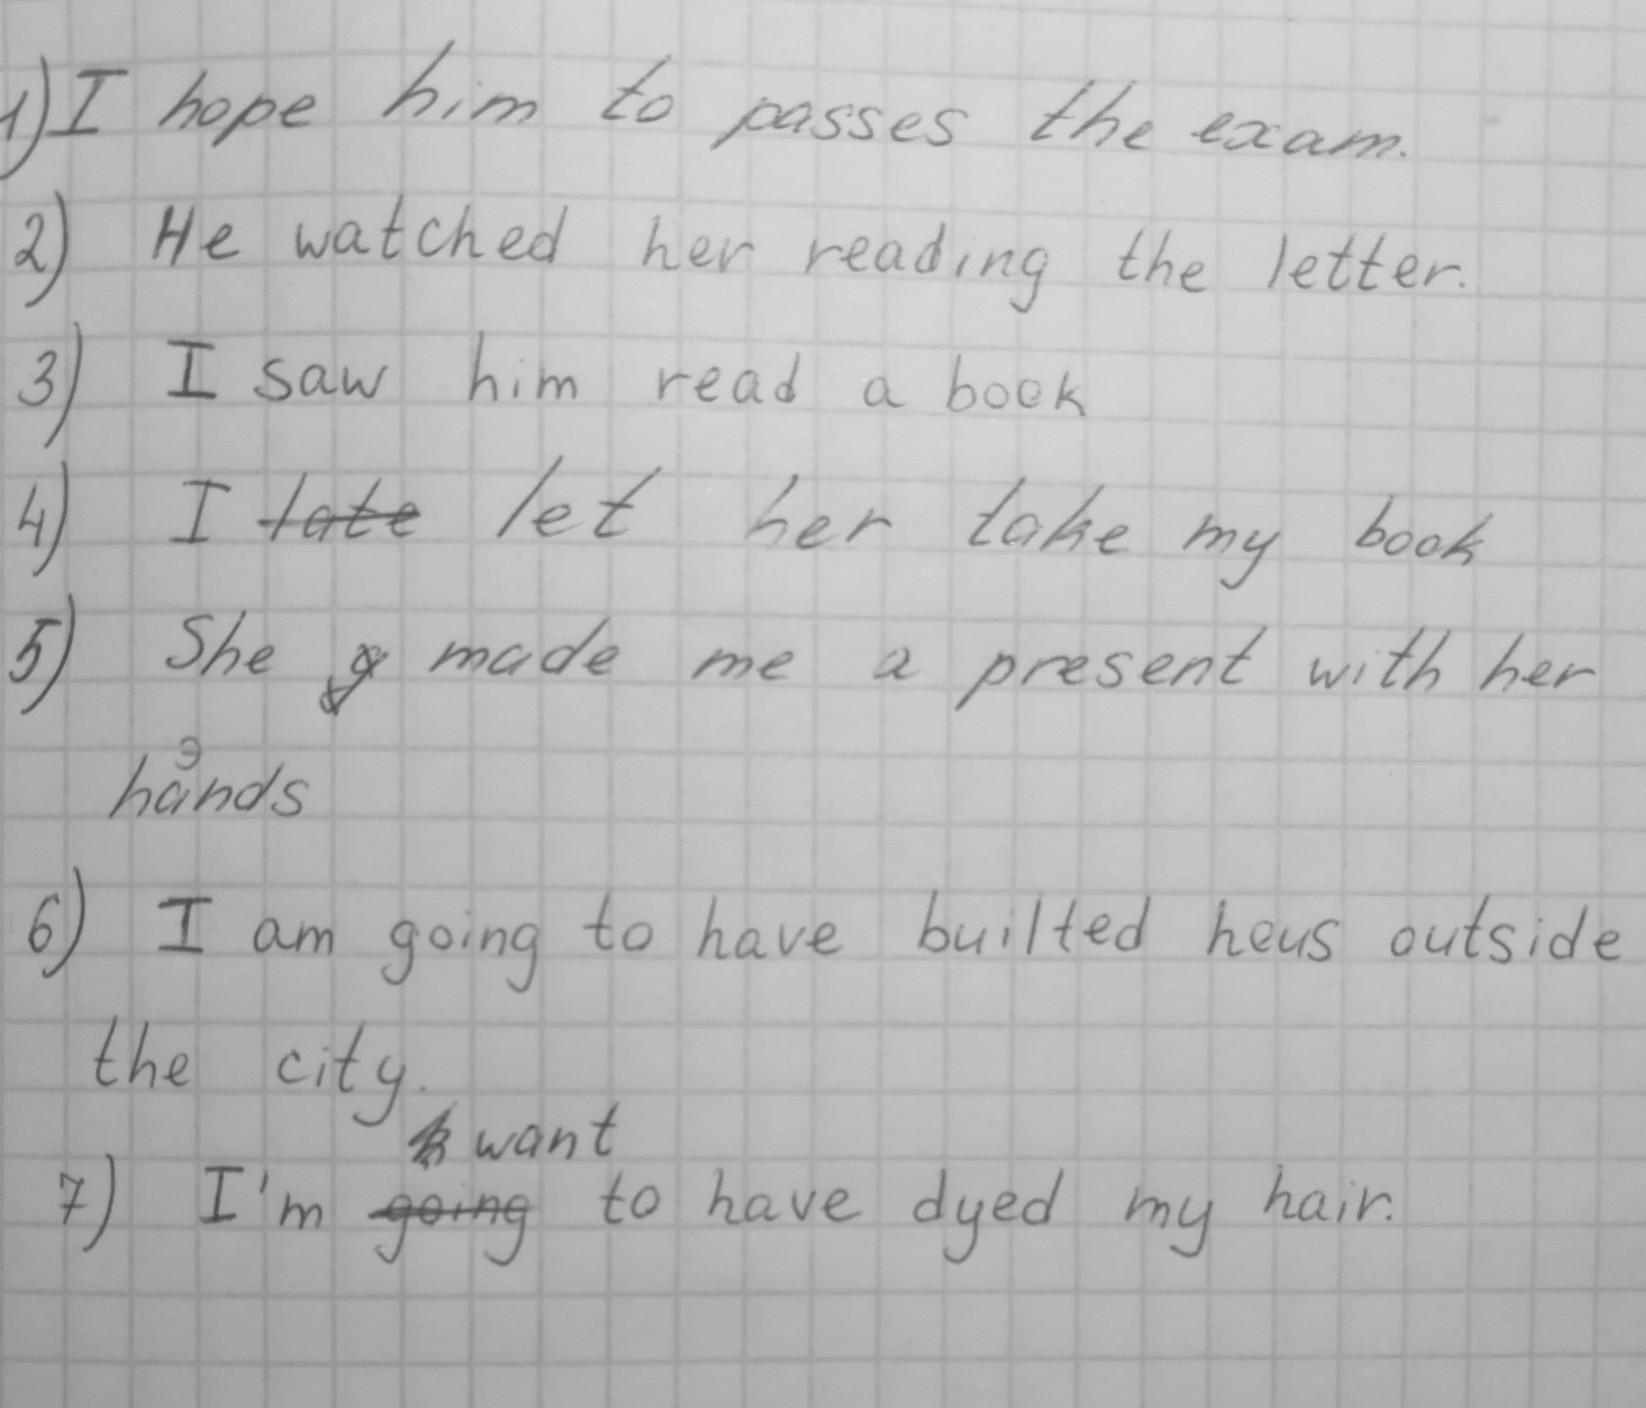 1) I hope him to passes the exam.
2) He watched her reading the letter.
3) I saw him read a book
4) I late let her take my book
5) She g made me a present with her
э
hands
6) I am going to have builted hous outside
the city.
want
7) I'm going to have dyed my hair.